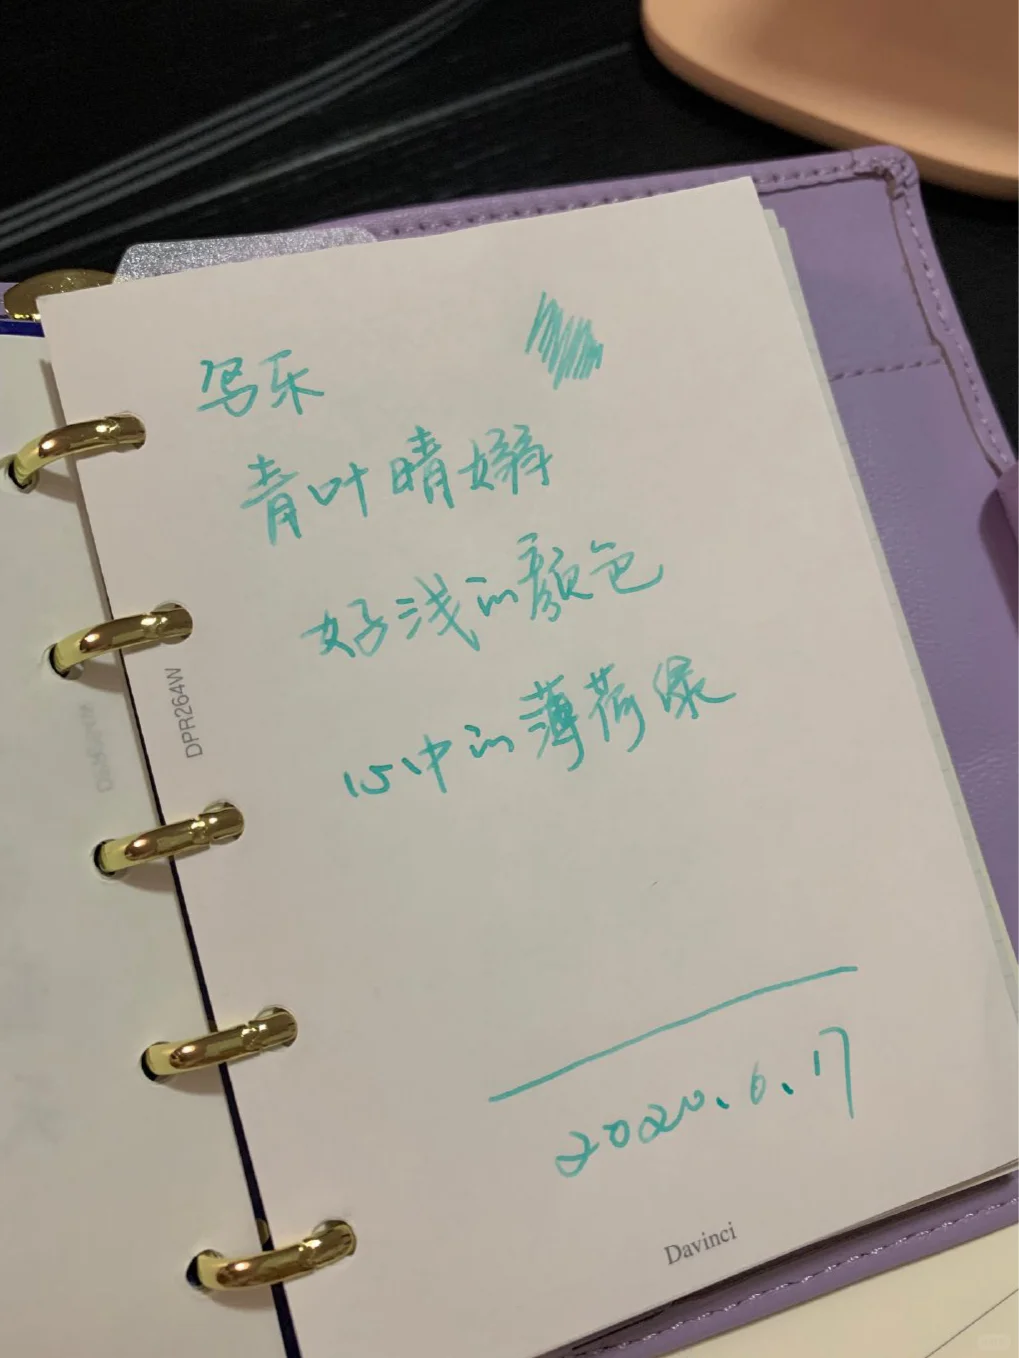 写乐
青叶晴嫋
好浅的颜色
心中的薄荷绿
2020.6.17
DPR264W
Davinci